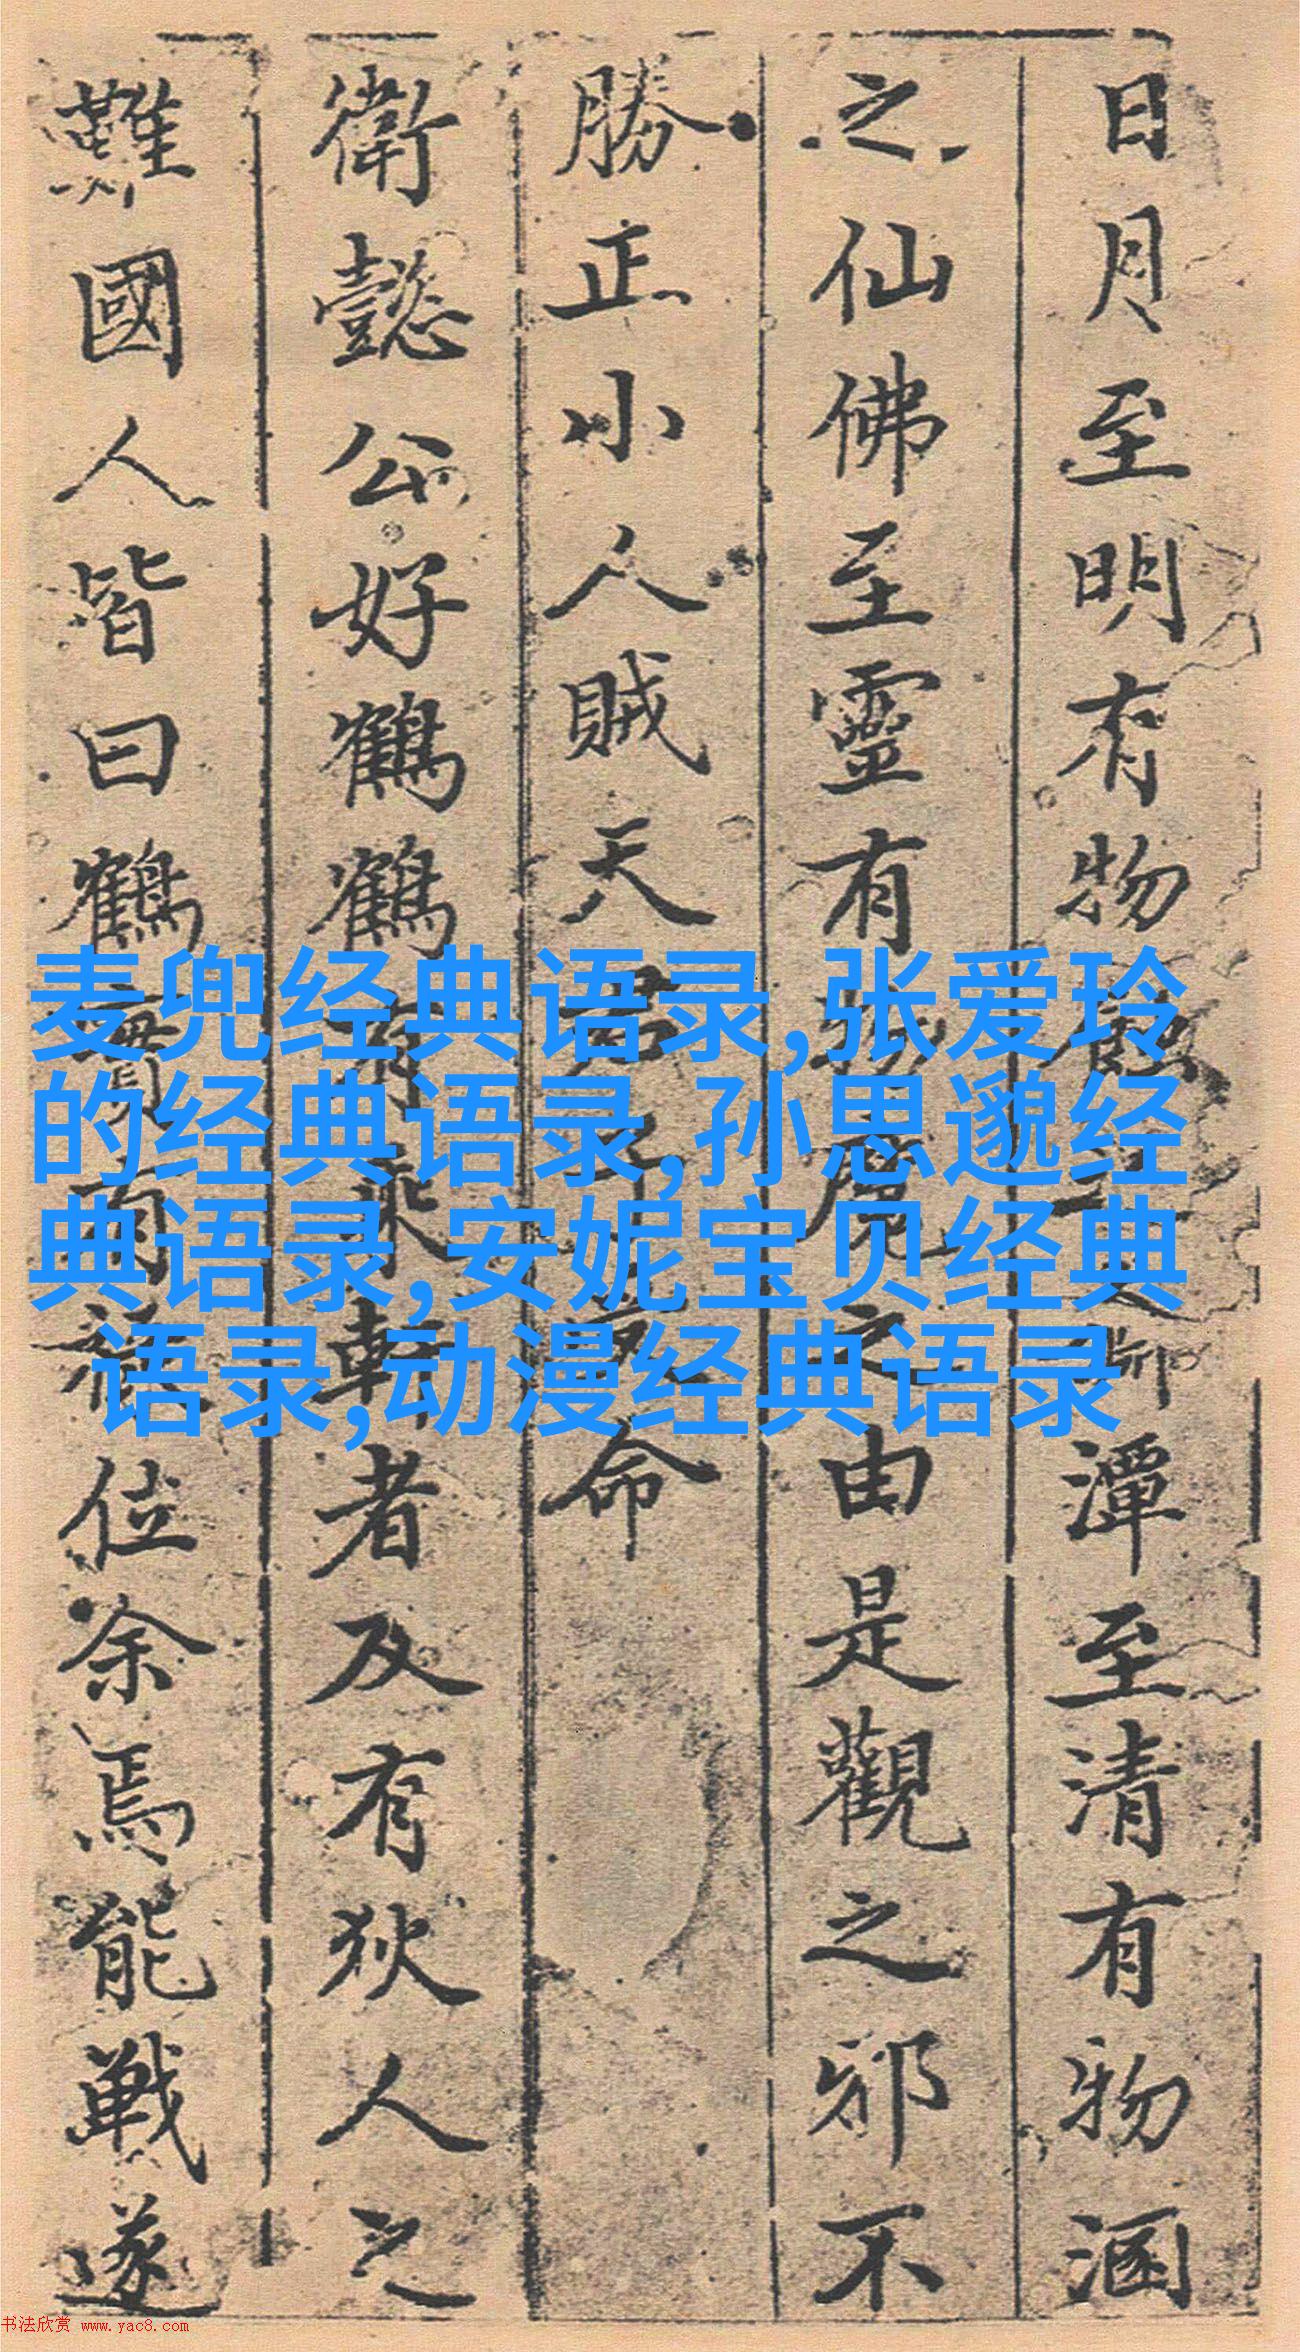 日月至明有物蝕之斯潭至清有物涵
之仙佛至靈有之由是觀之邪不
勝正小人賊天君命
衛懿公好鶴鶴有乘軒者及有狄人之
難國人皆曰鶴實有祿位余焉能戰遂
麦兜经典语录,张爱玲
的经典语录,孙思邈经
典语录,安妮宝贝经典
语录,动漫经典语录
书法欣赏 www.yac8.com